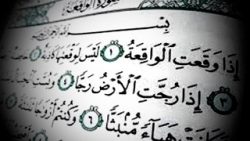 سُورَةُ الْوَاقِعَة
بِسْمِ
إِذَا وَقَعَتِ ٱلْوَاقِعَةُ ١ لَيْسَ لِوَقْعَتِهَا كَاذِبَةٌ
٣ إِذَا رُجَّتِ ٱلْأَرْضُ رَجًّا ٤ وَبُسَّتِ
هَبَآءً مُّنۢبَثًّا ٦ وَكُنتُمْ أَزْوَٰجًا